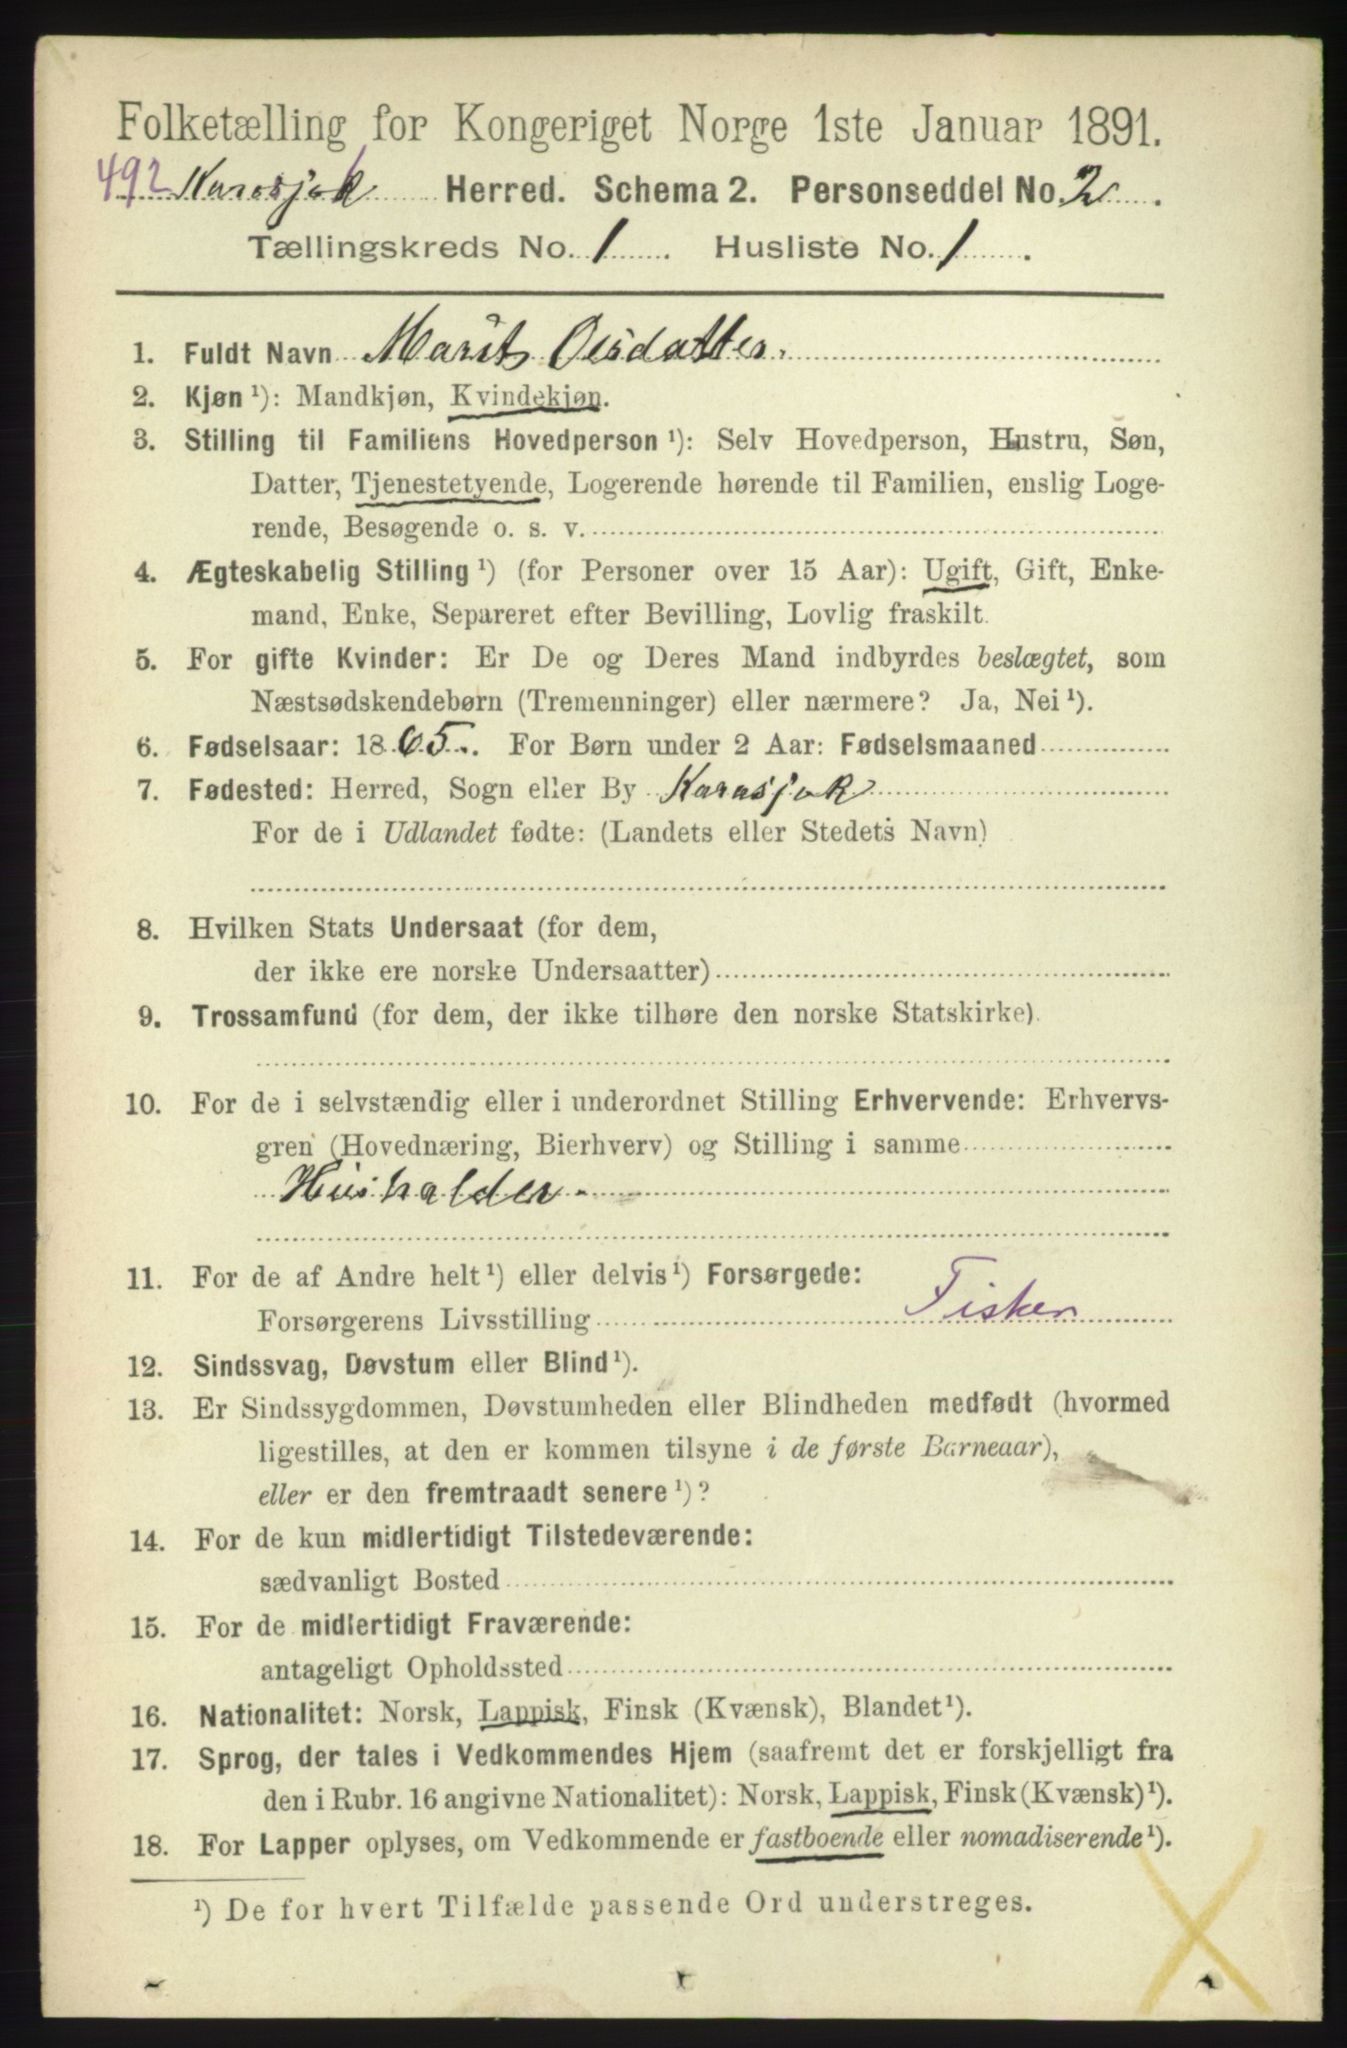 Folketælling for Kongeriget Norge 1ste Januar 1891.
492 Karasjok Herred. Schema 2. Personseddel No. 2.
Tællingskreds No. 1. Husliste No. 1.
1. Fuldt Navn Marit Olsdatter.
2. Kjøn ¹): Mandkjøn, Kvindekjøn.
3. Stilling til Familiens Hovedperson ¹): Selv Hovedperson, Hustru, Søn,
Datter, Tjenestetyende, Logerende hørende til Familien, enslig Loge-
rende, Besøgende o. s. v.
4. Ægteskabelig Stilling ¹) (for Personer over 15 Aar): Ugift, Gift, Enke-
mand, Enke, Separeret efter Bevilling, Lovlig fraskilt.
5. For gifte Kvinder: Er De og Deres Mand indbyrdes beslægtet, som
Næstsødskendebørn (Tremenninger) eller nærmere? Ja, Nei ¹).
6. Fødselsaar: 1865. For Børn under 2 Aar: Fødselsmaaned
7. Fødested: Herred, Sogn eller By Karasjok
For de i Udlandet fødte: (Landets eller Stedets Navn)
8. Hvilken Stats Undersaat (for dem,
der ikke ere norske Undersaatter)
9. Trossamfund (for dem, der ikke tilhøre den norske Statskirke).
10. For de i selvstændig eller i underordnet Stilling Erhvervende: Erhvervs-
gren (Hovednæring, Bierhverv) og Stilling i samme
Husholder
11. For de af Andre helt ¹) eller delvis ¹) Forsørgede:
Forsørgerens Livsstilling Fisker
12. Sindssvag, Døvstum eller Blind ¹).
13. Er Sindssygdommen, Døvstumheden eller Blindheden medfødt (hvormed
ligestilles, at den er kommen tilsyne i de første Barneaar),
eller er den fremtraadt senere ¹)?
14. For de kun midlertidigt Tilstedeværende:
sædvanligt Bosted
15. For de midlertidigt Fraværende:
antageligt Opholdssted
16. Nationalitet: Norsk, Lappisk, Finsk (Kvænsk), Blandet ¹).
17. Sprog, der tales i Vedkommendes Hjem (saafremt det er forskjelligt fra
den i Rubr. 16 angivne Nationalitet): Norsk, Lappisk, Finsk (Kvænsk) ¹).
18. For Lapper oplyses, om Vedkommende er fastboende eller nomadiserende ¹).
¹) De for hvert Tilfælde passende Ord understreges.